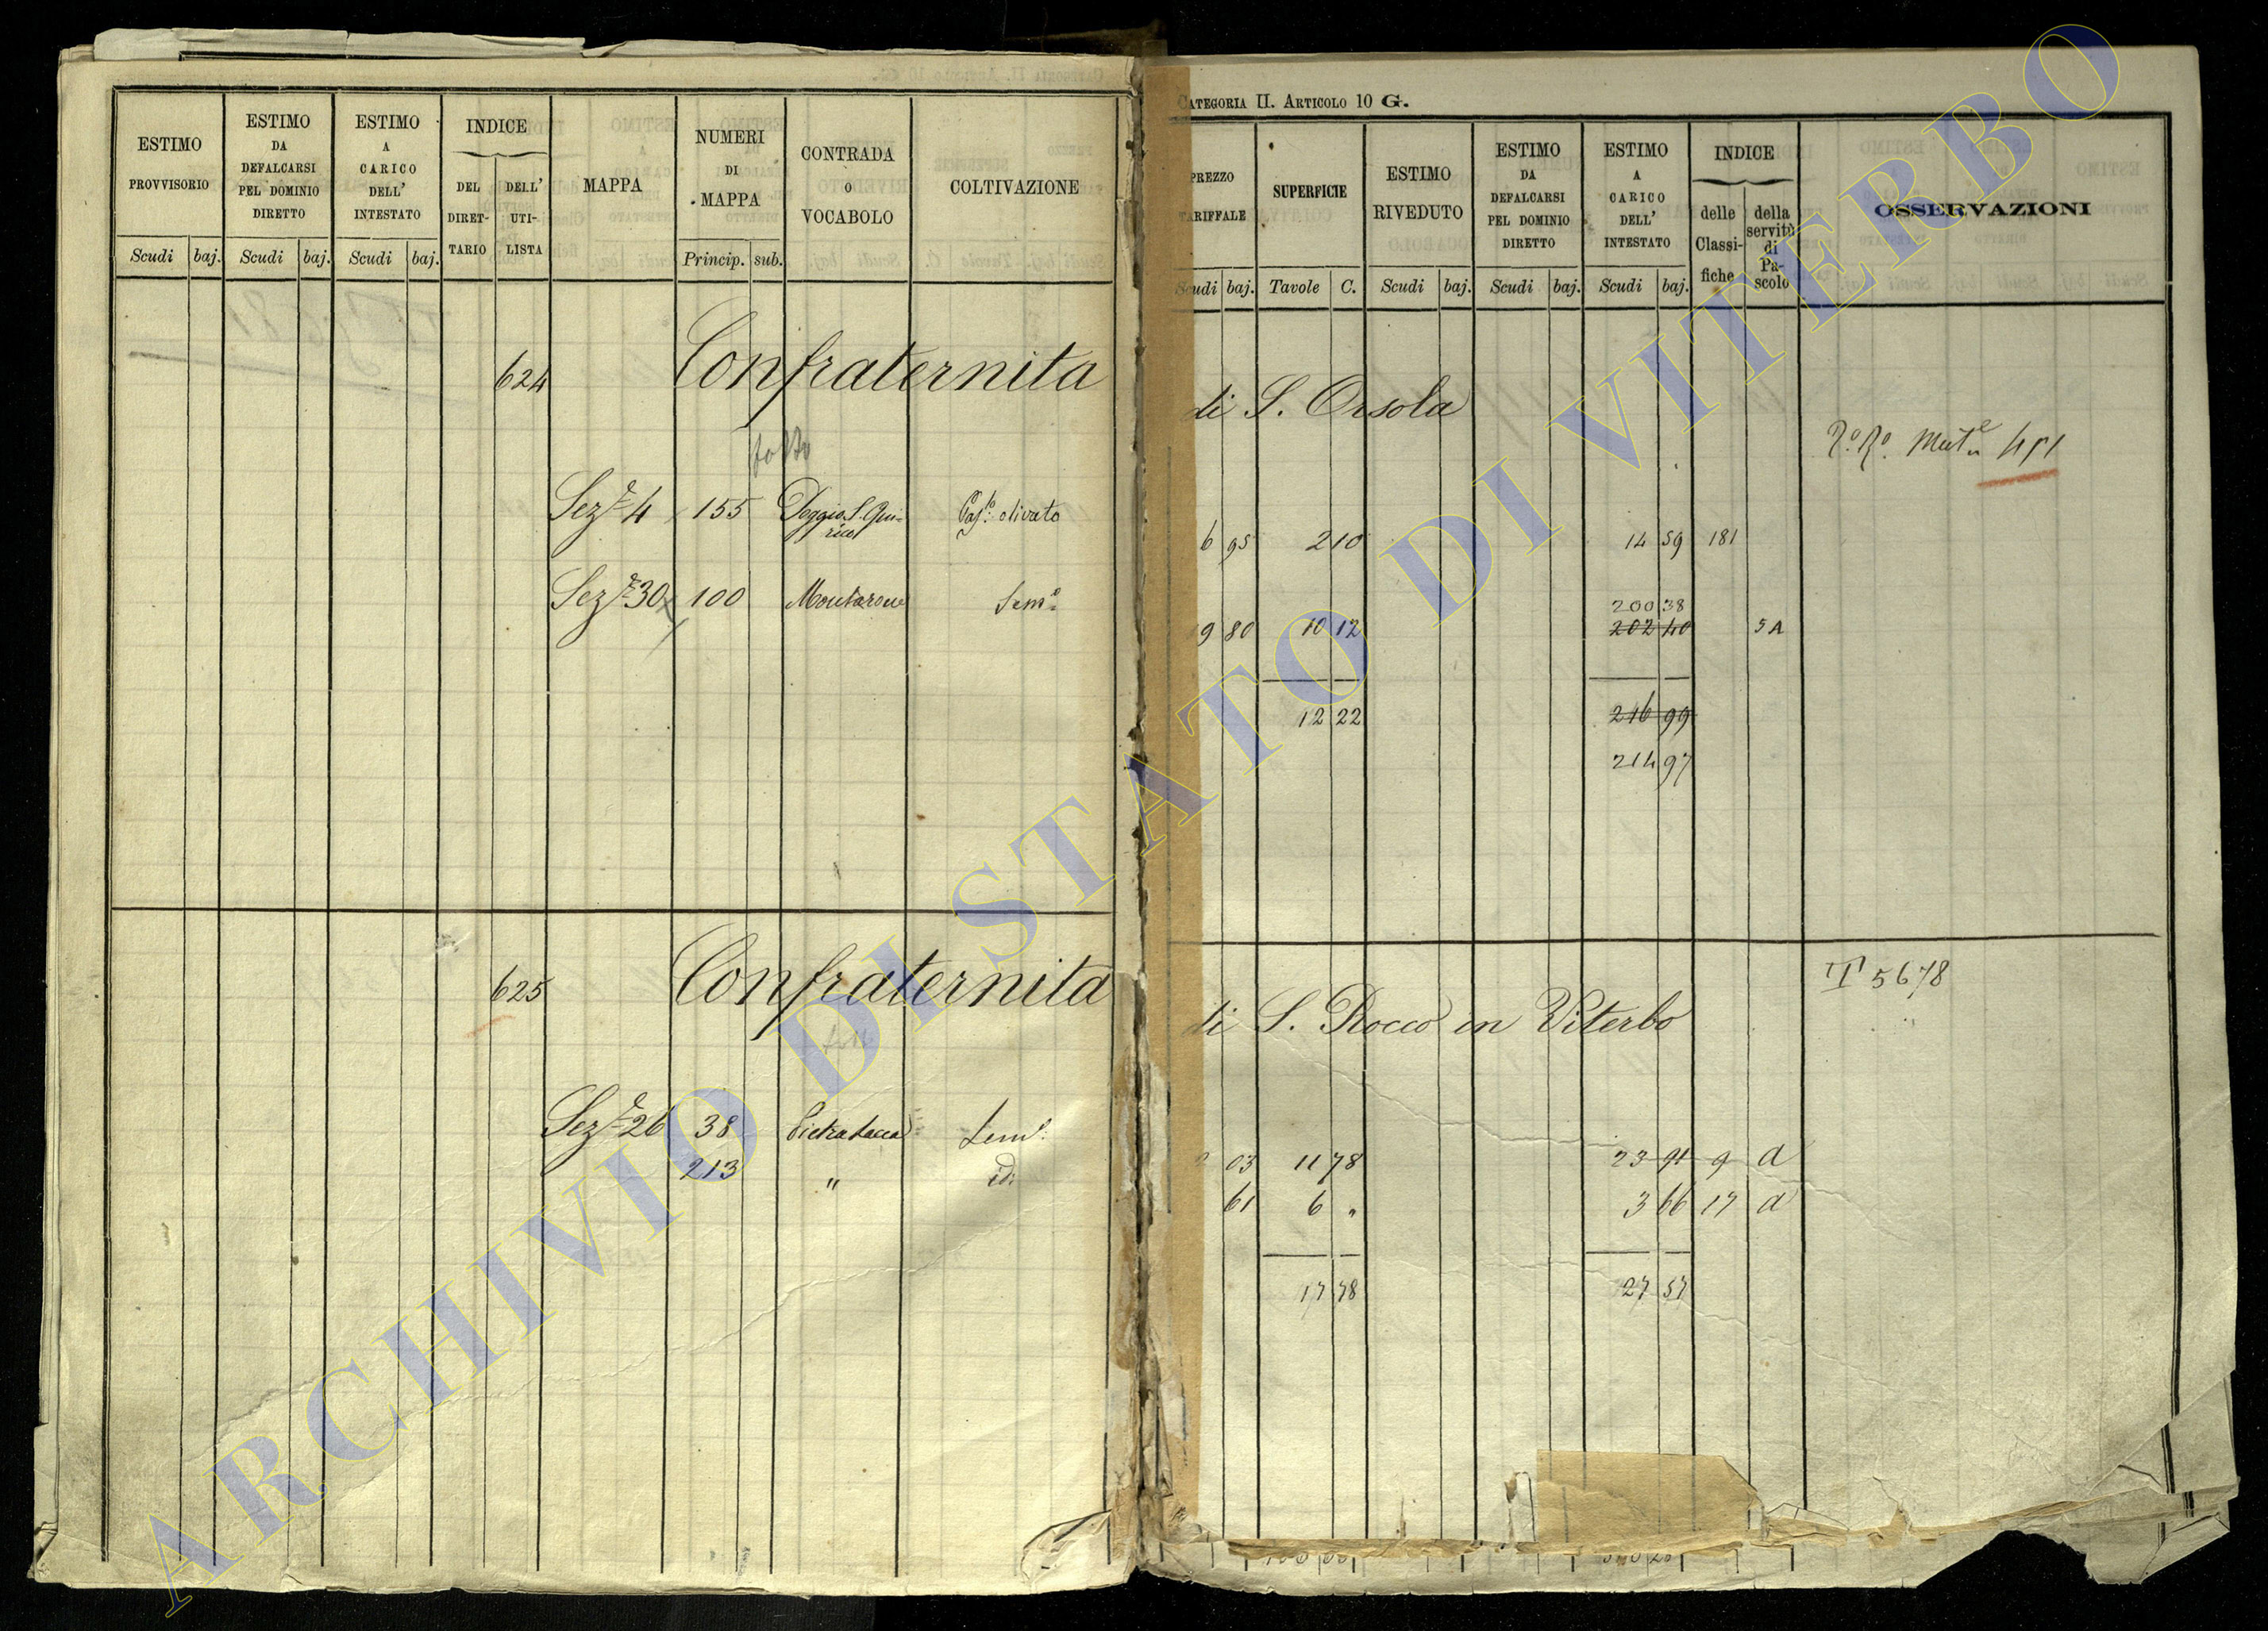 CATEGORIA II. ARTICOLO 10 G.
ESTIMO PROVVISORIO
Scudi baj.
ESTIMO DA DEFALCARSI PEL DOMINIO DIRETTO
Scudi baj.
ESTIMO A CARICO DELL' INTESTATO
Scudi baj.
INDICE
DEL DIRET-TARIO
DELL' UTI-LISTA
MAPPA
NUMERI DI MAPPA
Princip. sub.
CONTRADA O VOCABOLO
COLTIVAZIONE
PREZZO TARIFFALE
Scudi baj.
SUPERFICIE
Tavole C.
ESTIMO RIVEDUTO
Scudi baj.
ESTIMO DA DEFALCARSI PEL DOMINIO DIRETTO
Scudi baj.
ESTIMO A CARICO DELL' INTESTATO
Scudi baj.
INDICE
delle Classi-fiche
della servitù di Pa-scolo
OSSERVAZIONI
624 Confraternita di S. Orsola
451
Sez.e 4 155 Poggio S. Qui-rico Pas.o olivato 6 95 2 10 14 59 181
200 38
Sez.e 30 100 Montarone Sem.o 9 80 10 12 202 40 5 A
12 22 216 99
214 97
625 Confraternita di S. Rocco in Viterbo
T 5678
Sez.e 26 38 Pietratacca Sem.o 03 11 78 23 91 9 a
213 " id. 61 6 " 3 66 17 a
17 78 27 57
ARCHIVIO DI STATO DI VITERBO